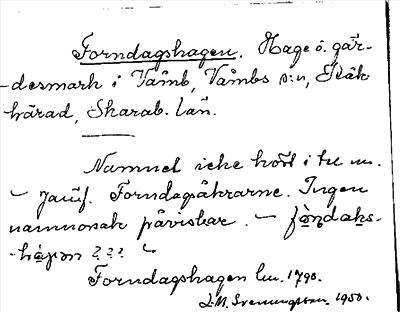 Forndagshagen. Hage ö. gär-
desmark i Våmb, Våmbs s:n, Kåk
härad, Skarab. län.
Namnet icke hört i tu m.
— jämf. Forndagsåkrarne. Ingen
namnorsak påvisbar. —
???
Forndagshagen lm. 1790.
J. M. Svenungsson. 1950.